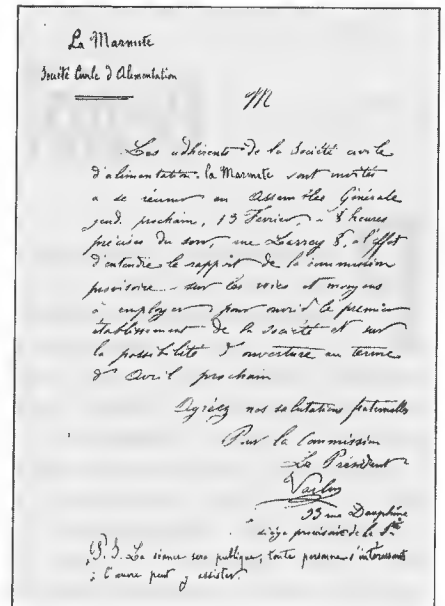 La Marmite
Société Civile d'Alimentation
M
Les adhérents de la Société civile
d'alimentation la Marmite sont invités
a se réunir en Assemblée Générale
jeudi prochain, 13 Février, à 8 heures
précises du soir, rue Larrey 8, à l'effet
d'entendre le rapport de la commission
provisoire sur les voies et moyens
à employer pour ouvrir le premier
établissement de la Société et sur
la possibilité d'ouverture au terme
d'Avril prochain
Agréez nos salutations fraternelles
Pour la Commission
Le Président
Varlin
33 rue Dauphine
siège provisoire de la Sté
P.S. La séance sera publique, toute personne s'intéressant
à l'œuvre peut y assister.